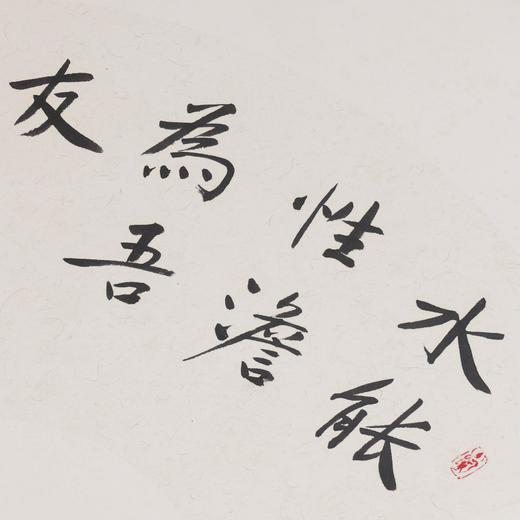 水能
性澹
為吾
友